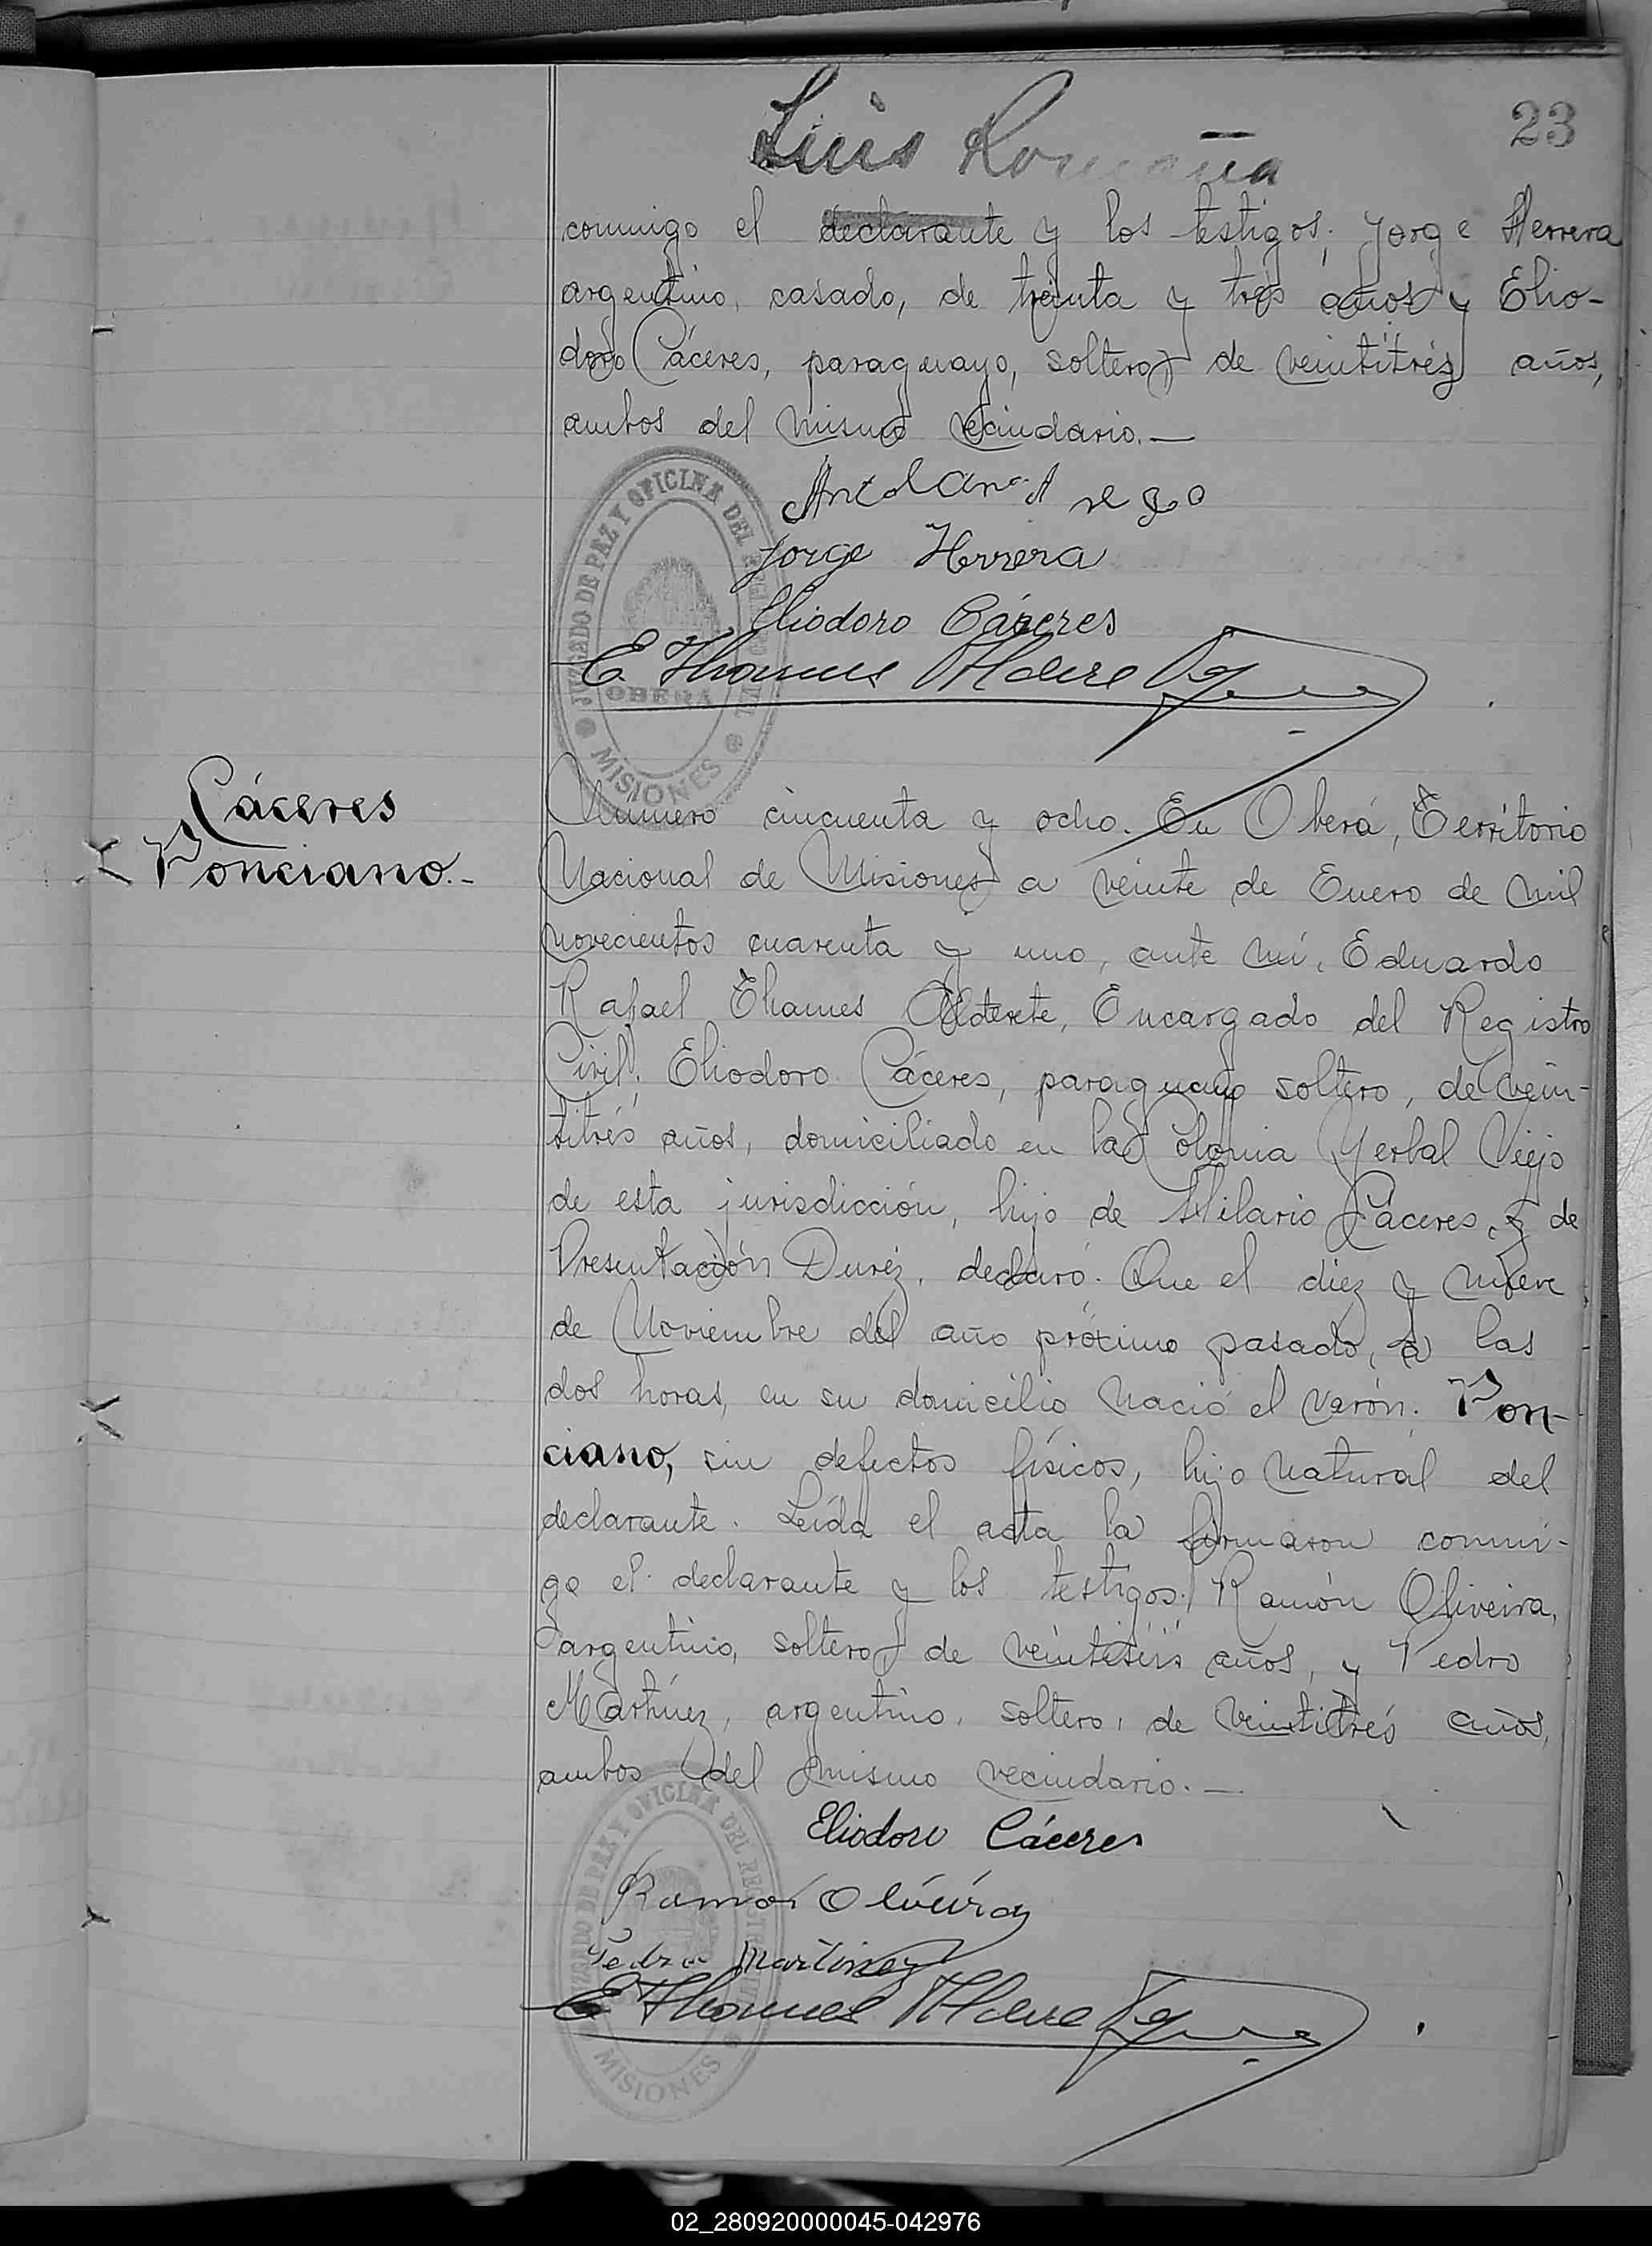 Luis Romaña
23
conmigo el declarante y los testigos: Jorge Herrera
argentino, casado, de treinta y tres años y Elio-
doro Cáceres, paraguayo, soltero, de veintitrés años,
ambos del mismo vecindario.—
Jorge Herrera
Eliodoro Cáceres
E. Thames Alderete
JUZGADO DE PAZ Y OFICINA DEL REGISTRO CIVIL
OBERA
MISIONES
Cáceres
Ponciano.-
Número cincuenta y ocho. En Oberá, Territorio
Nacional de Misiones a veinte de Enero de mil
novecientos cuarenta y uno, ante mí, Eduardo
Rafael Thames Alderete, Encargado del Registro
Civil, Eliodoro Cáceres, paraguayo soltero, de vein-
titrés años, domiciliado en la Colonia Yerbal Viejo
de esta jurisdicción, hijo de Hilario Cáceres, y de
Presentación Duréz, declaró: Que el diez y nueve
de Noviembre del año próximo pasado, a las
dos horas, en su domicilio nació el varón: Pon-
ciano, sin defectos físicos, hijo natural del
declarante. Leída el acta la firmaron conmi-
go el declarante y los testigos: Ramón Oliveira,
argentino, soltero, de años, y Pedro
Martínez, argentino, soltero, de veintitrés años,
ambos del mismo vecindario.—
Eliodoro Cáceres
Ramón Oliveira
Pedro Martinez
E. Thames Alderete
JUZGADO DE PAZ Y OFICINA DEL REGISTRO CIVIL
MISIONES
02_280920000045-042976